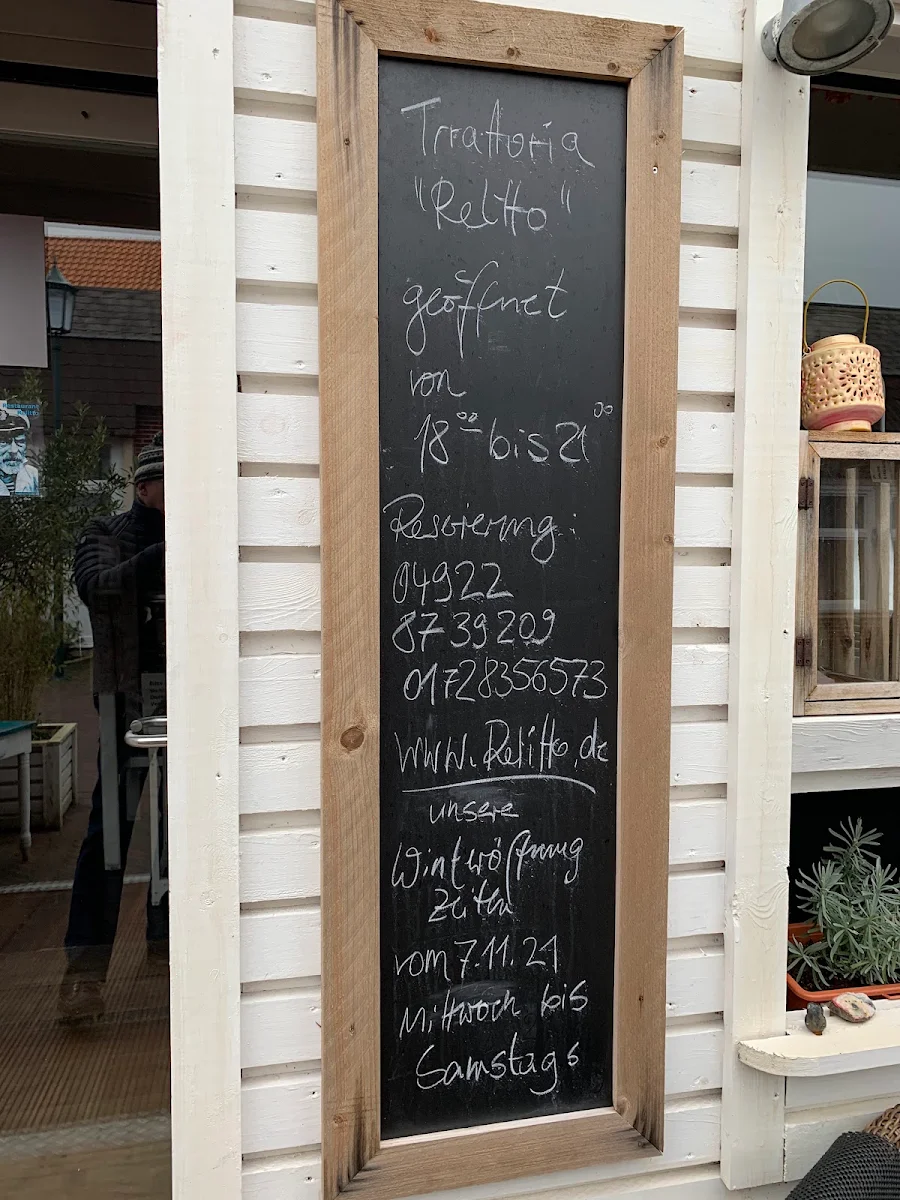 Trattoria
"Relitto"
geöffnet
von
18⁰⁰ bis 21⁰⁰
Reservierung:
04922
87 39 209
01728356573
www.Relitto.de
unsere
Winteröffnung
Zeiten
vom 7.11.21
Mittwoch bis
Samstags
Restaurant